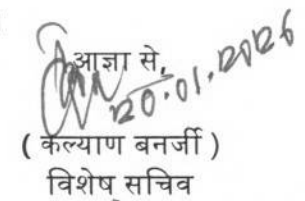 आज्ञा से,
20.01.2026
( कल्याण बनर्जी )
विशेष सचिव